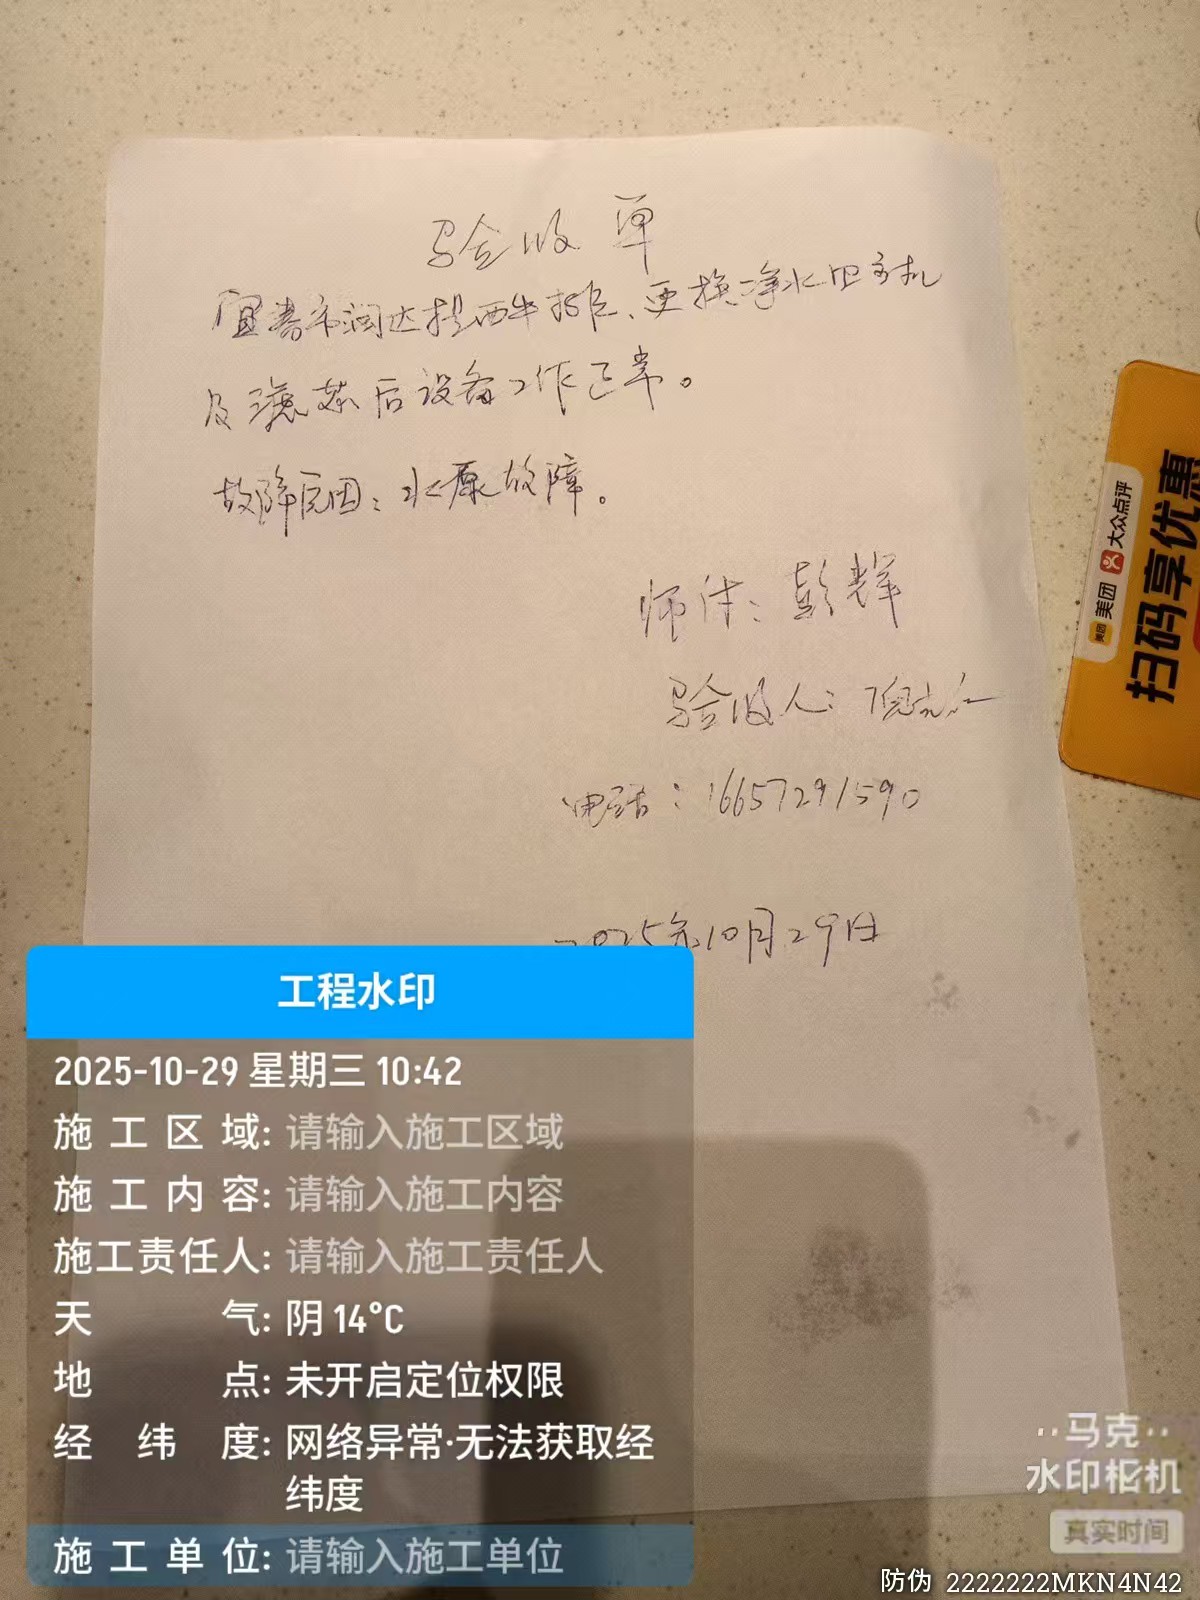 验收单
宜春市润达提西牛排、更换净水四主机
及滤芯后设备工作正常。
故障原因:水原故障。
师付:彭辉
验收人:倪
电话:16657291590
2025年10月29日
美团 美团 大众点评
扫码享优惠
工程水印
2025-10-29 星期三 10:42
施工区域: 请输入施工区域
施工内容: 请输入施工内容
施工责任人: 请输入施工责任人
天气: 阴 14°C
地点: 未开启定位权限
经纬度: 网络异常·无法获取经
纬度
施工单位: 请输入施工单位
马克
水印相机
真实时间
防伪 2222222MKN4N42